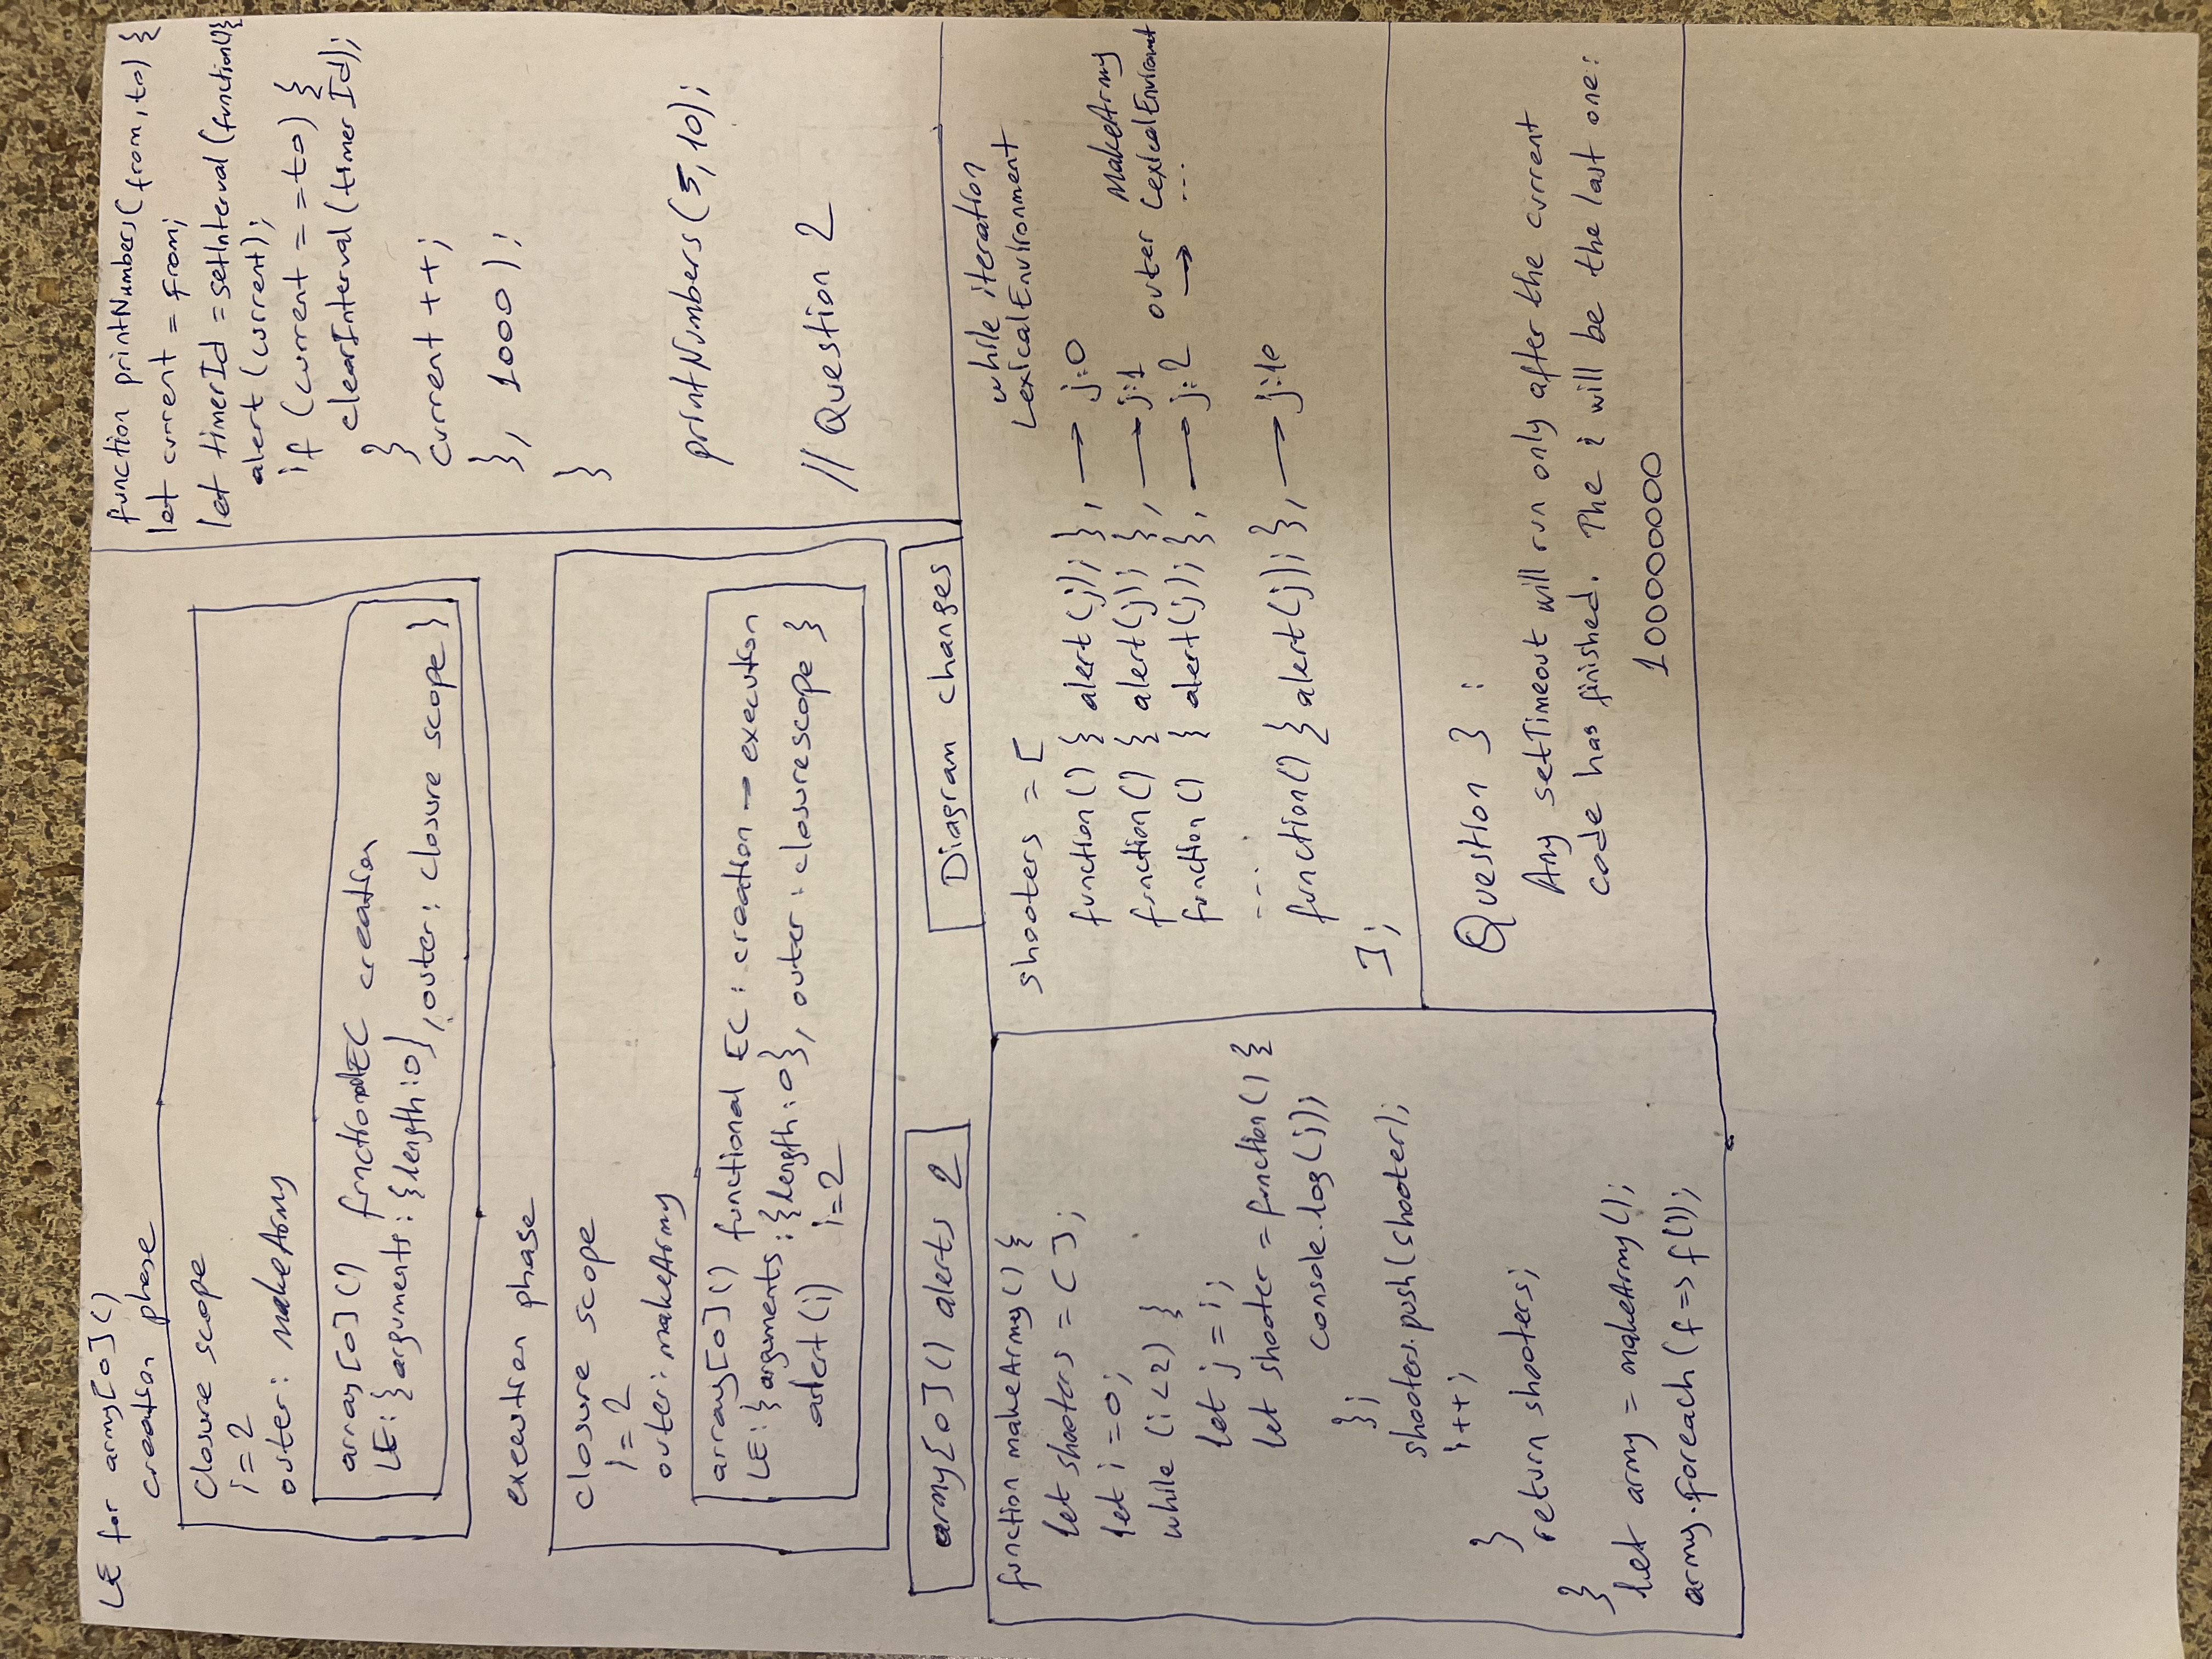 LE for army[0]()
creation phase
closure scope
i=2
outer: makeArmy
array[0]() functional EC creation
LE:{arguments:{length:0}, outer: closure scope}
execution phase
closure scope
i=2
outer: makeArmy
array[0]() functional EC: creation → execution
LE:{arguments:{length:0}, outer: closure scope}
alert(i) i=2
army[0]() alerts 2
Diagram changes
function printNumbers(from, to) {
let current = from;
let timerId = setInterval(function(){
alert(current);
if (current = = to) {
clearInterval(timerId);
}
current ++;
}, 1000);
}
printNumbers(5, 10);
// Question 2
function makeArmy() {
let shooters = [];
let i = 0;
while (i<2) {
let j = i;
let shooter = function() {
console.log(j);
};
shooters.push(shooter);
i++;
}
return shooters;
}
let army = makeArmy();
army.foreach(f=> f());
while iteration
LexicalEnvironment
shooters = [
function() { alert(j); }, → j:0
function() { alert(j); }, → j:1
function() { alert(j); }, → j:2
outer →
MakeArmy
LexicalEnviromet
...
...
function() { alert(j); }, → j:10
];
Question 3 :
Any setTimeout will run only after the current
code has finished. The i will be the last one:
100000000